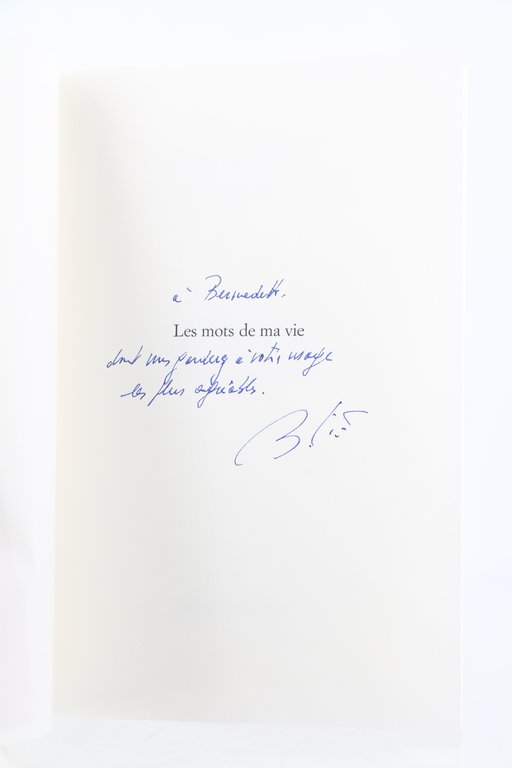 à Bernadette.
Les mots de ma vie
dont vous garderez à votre usage
les plus agréables.